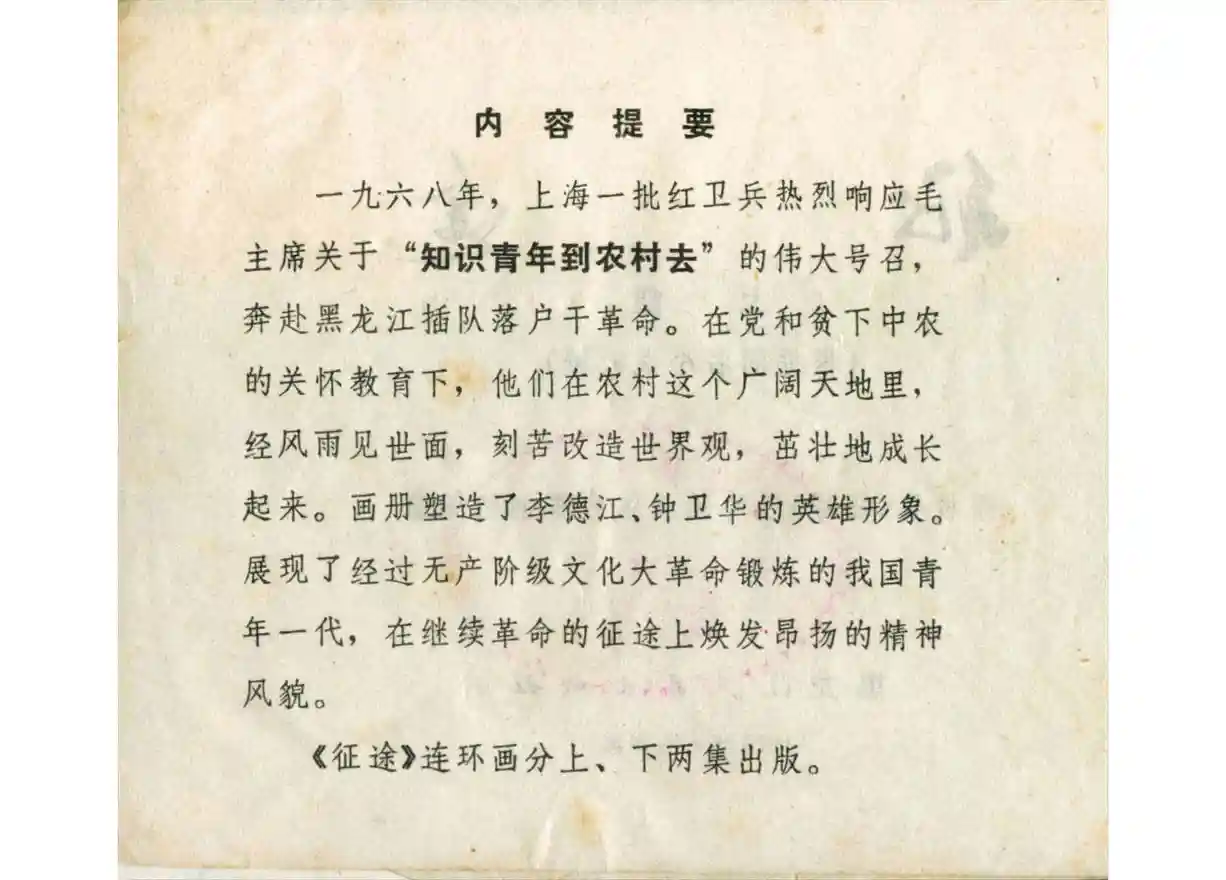 内容提要
一九六八年，上海一批红卫兵热烈响应毛
主席关于“知识青年到农村去”的伟大号召，
奔赴黑龙江插队落户干革命。在党和贫下中农
的关怀教育下，他们在农村这个广阔天地里，
经风雨见世面，刻苦改造世界观，茁壮地成长
起来。画册塑造了李德江、钟卫华的英雄形象。
展现了经过无产阶级文化大革命锻炼的我国青
年一代，在继续革命的征途上焕发昂扬的精神
风貌。
《征途》连环画分上、下两集出版。